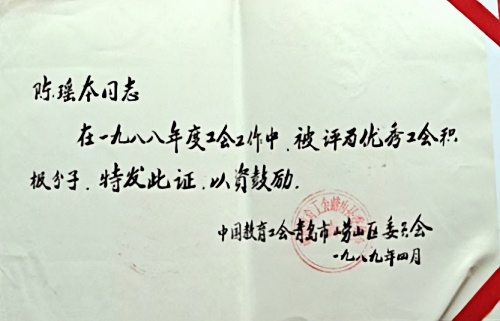 陈瑶本同志
在一九八八年度工会工作中，被评为优秀工会积
极分子，特发此证，以资鼓励。
中国教育工会青岛市崂山区委员会
一九八九年四月